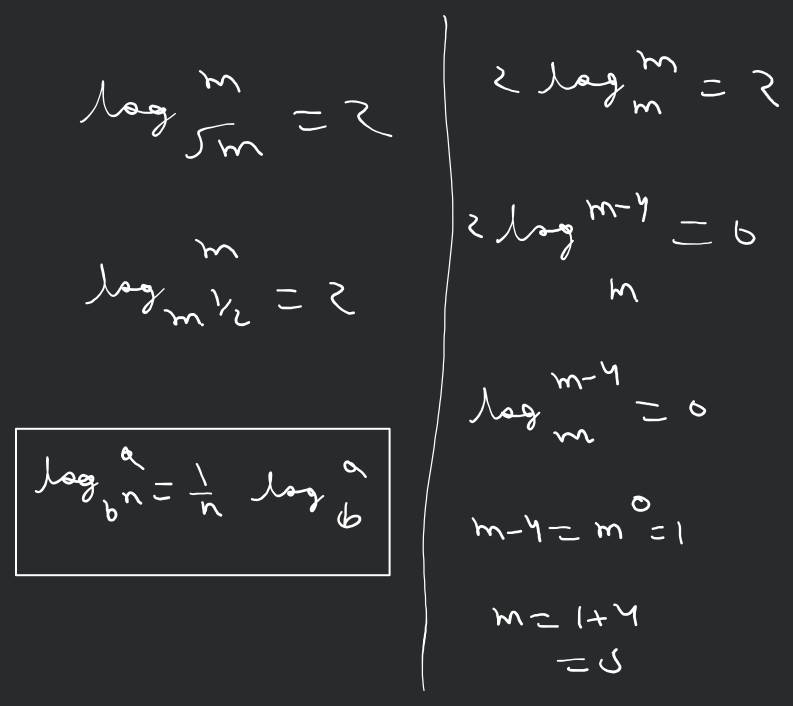 log_{√m}^{m} = 2
log_{m^{1/2}}^{m} = 2
log_{b^n}^{a} = 1/n log_{b}^{a}
2 log_{m}^{m} = 2
2 log_{m}^{m-4} = 0
log_{m}^{m-4} = 0
m-4 = m^0 = 1
m = 1+4
= 5